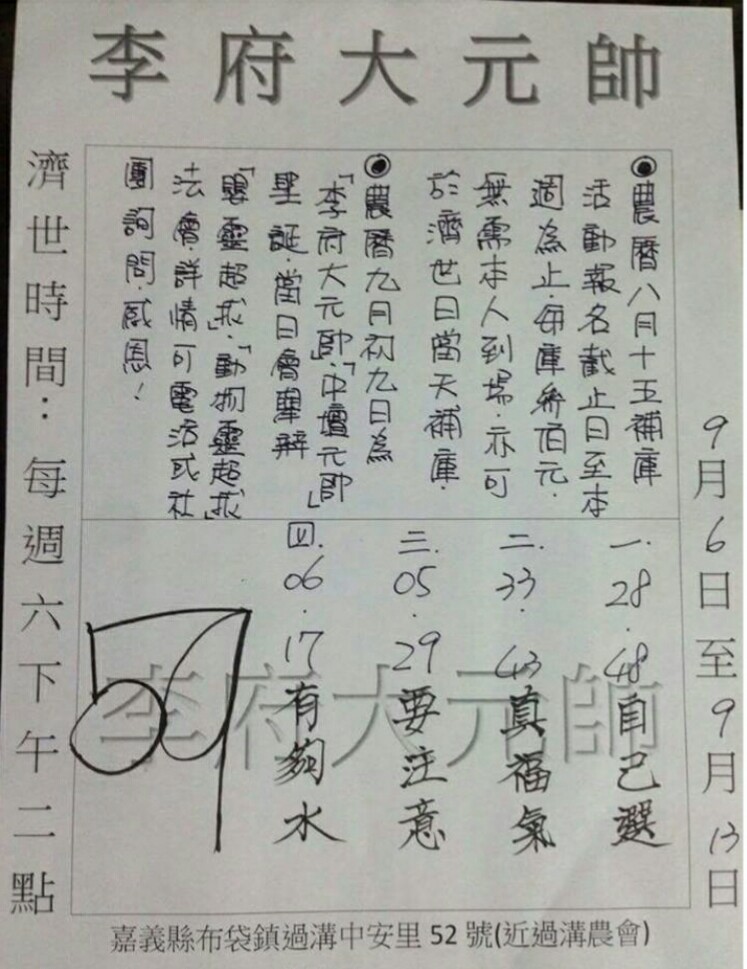 李府大元帥
9月6日至9月13日
◉農曆八月十五補庫
活動報名截止日至本
週為止．每庫叁佰元．
無需本人到場．亦可
於濟世日當天補庫．
◉農曆九月初九日為
「李府大元帥」「中壇元帥」
聖誕．當日會舉辦
「嬰靈超拔」．「動物靈超拔」
法會．詳情可電話或社
團詢問．感恩！
一．28．48自己選
二．33．43真福氣
三．05．29要注意
四．06．17有夠水
李府大元帥
濟世時間：每週六下午二點
嘉義縣布袋鎮過溝中安里52號(近過溝農會)